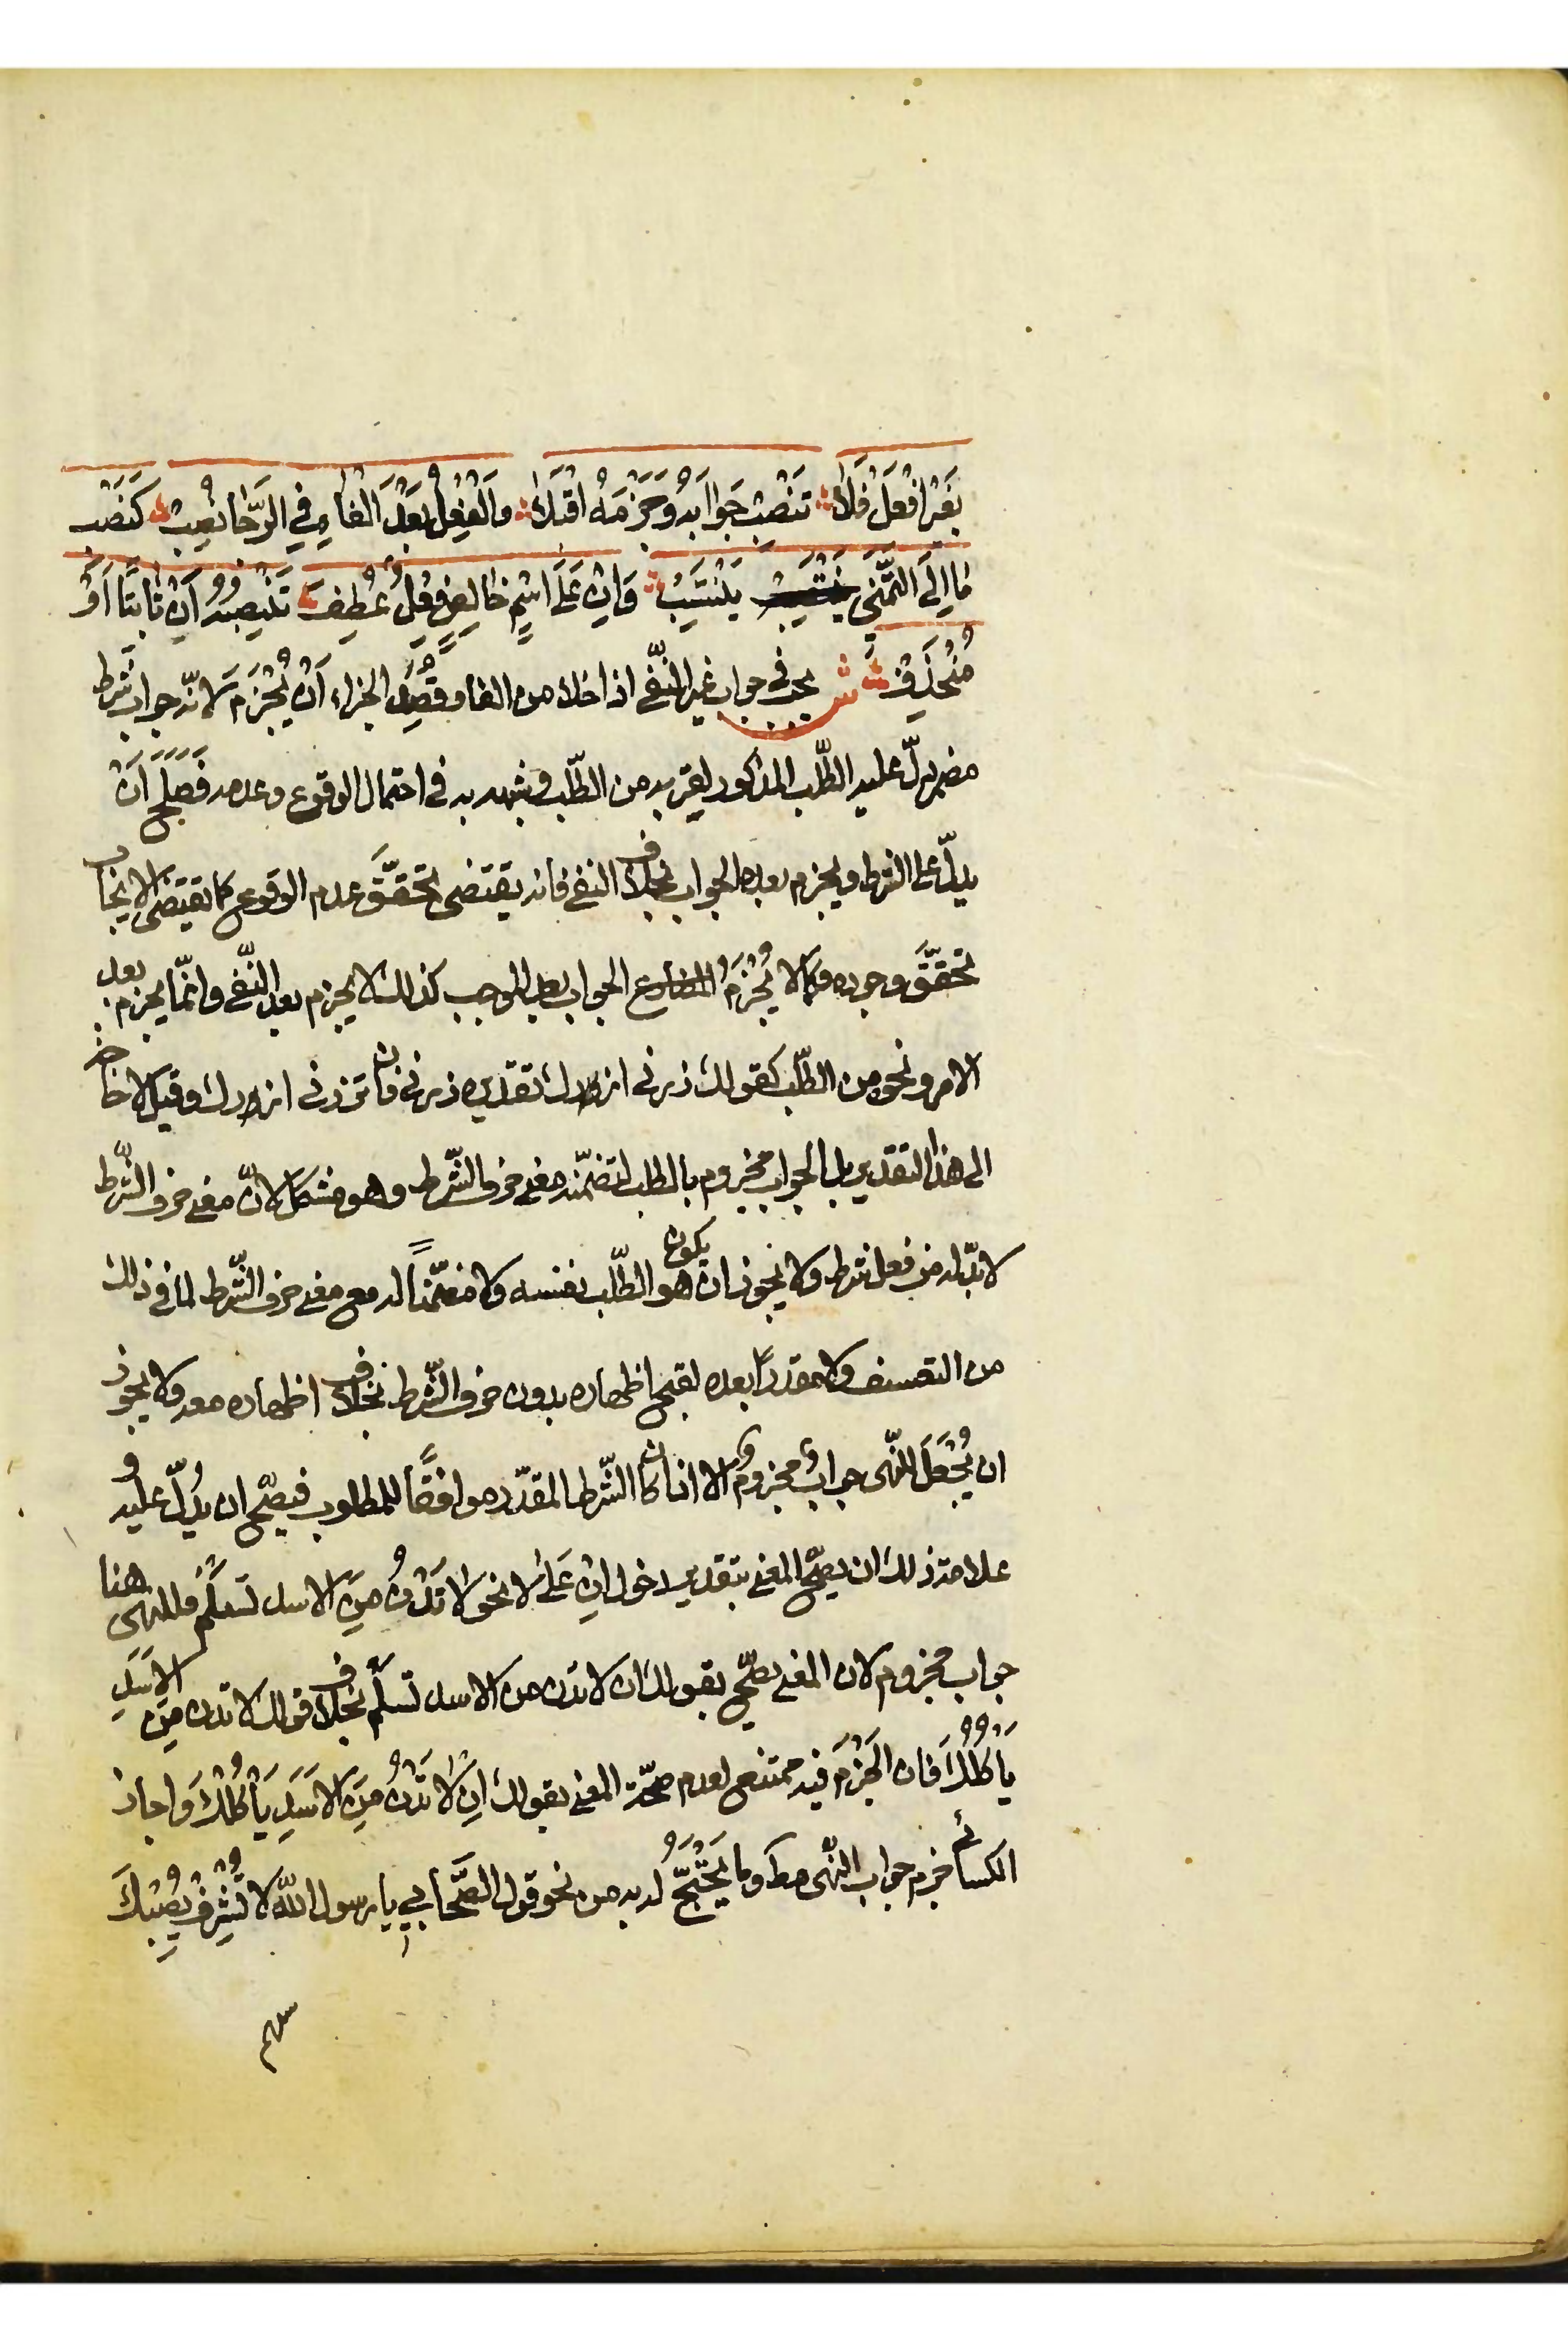 بغَيْرِ افْعَلْ فَلَا تَنْصِبْ جَوَابَهُ وَجَزْمَهُ اقْبَلَا وَالْفِعْلُ بَعْدَ الْفَاءِ فِي الرَّجَا نُصِبْ كَنَصْبِ
مَا اِلَى التَّمَنِّي يَنْتَسِبْ وَاِنْ عَلَى اسْمٍ خَالِصٍ فِعْلٌ عُطِفْ تَنْصِبُهُ اَنْ ثَابِتًا اَوْ
مُنْحَذِفْ ش يجب في جواب غير النّفي اذا خلا من الفا وقُصِدَ الجزاء اَنْ يُجْزَمَ لانّه جواب شرط
مضمر دلّ عليه الطّلب المذكور لقربه من الطّلب وشبهه به في احتمال الوقوع وعدمه فَصَلَحَ اَنْ
يدلّ على الشرط ويجزم بعده الجواب بخلاف النفي فانه يقتضي تحقّقَ عدم الوقوع كما يقتضي الايجاب
تحقّقَ وجوده وكما لا يُجْزَمُ الجواب بعد الموجب كذلك لا يجزم بعد النّفي وانّما يجزم بعد
الامر ونحوه من الطّلب كقولك زرني ازورك تقديره زرني فان تزرني ازورك وقيل لا حاجة
الى هذا التقدير بل الجواب مجزوم بالطلب لتضمّنه معنى حرف الشّرط وهو مشكل لانّ معنى حرف الشّرط
لا بدّ له من فعل شرط ولا يجوز ان يكون هو الطّلب بنفسه ولا مضمّنًا له مع معنى حرف الشّرط لما في ذلك
من التعسف ولا مقدرًا بعده لقبح اظهاره بدون حرف الشّرط بخلاف اظهاره معه ولا يجوز
ان يُجْعَلَ للنّهي جوابٌ مجزومٌ الا اذا كان الشّرط المقدّر موافقًا للمطلوب فيصحّ ان يدُلّ عليه و
علامة ذلك ان يصحّ المعنى بتقدير دخول اِنْ عَلَى لا نحو لا تَدْنُ مِنَ الاسد تسلَمْ فللنهي هنا
جواب مجزوم لان المعنى يصحّ بقولك ان لا تدن من الاسد تسلَم بخلاف قولك لا تدن مِنَ الاَسَدِ
يَأكُلُكَ فان الجَزْمَ فيه ممتنع لعدم صحّة المعنى بقولك اِنْ لَا تَدْنُ مِنَ الاَسَدِ يَأْكُلْكَ وَاجاز
الكسائي جزم جواب النّهي مط وما يُحْتَجُّ له به من نحو قول الصَّحَابي يا رسول الله لا تُشْرِفْ يُصِبْكَ
سهم